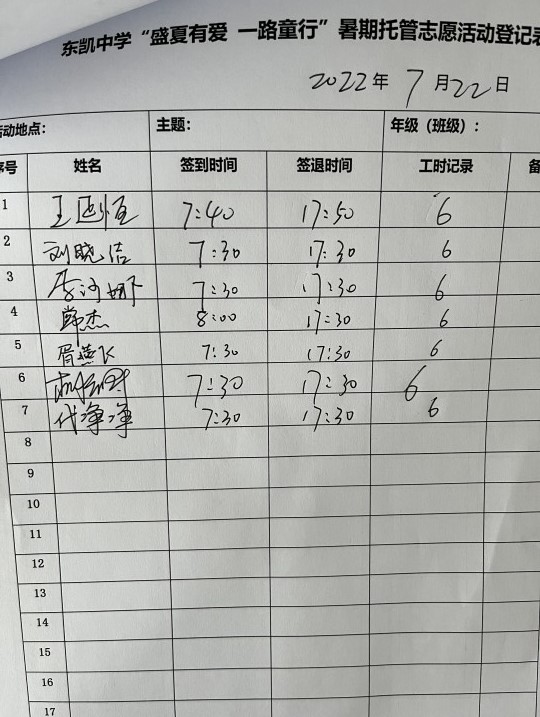 东凯中学“盛夏有爱 一路童行”暑期托管志愿活动登记表
2022年 7月22日
活动地点： 主题： 年级（班级）：
序号 姓名 签到时间 签退时间 工时记录 备
1 7:40 17:50 6
2 刘晓洁 7:30 17:30 6
3 7:30 17:30 6
4 韩杰 8:00 17:30 6
5 胥燕飞 7:30 17:30 6
6 7:30 17:30 6
7 代净净 7:30 17:30 6
8
9
10
11
12
13
14
15
16
17